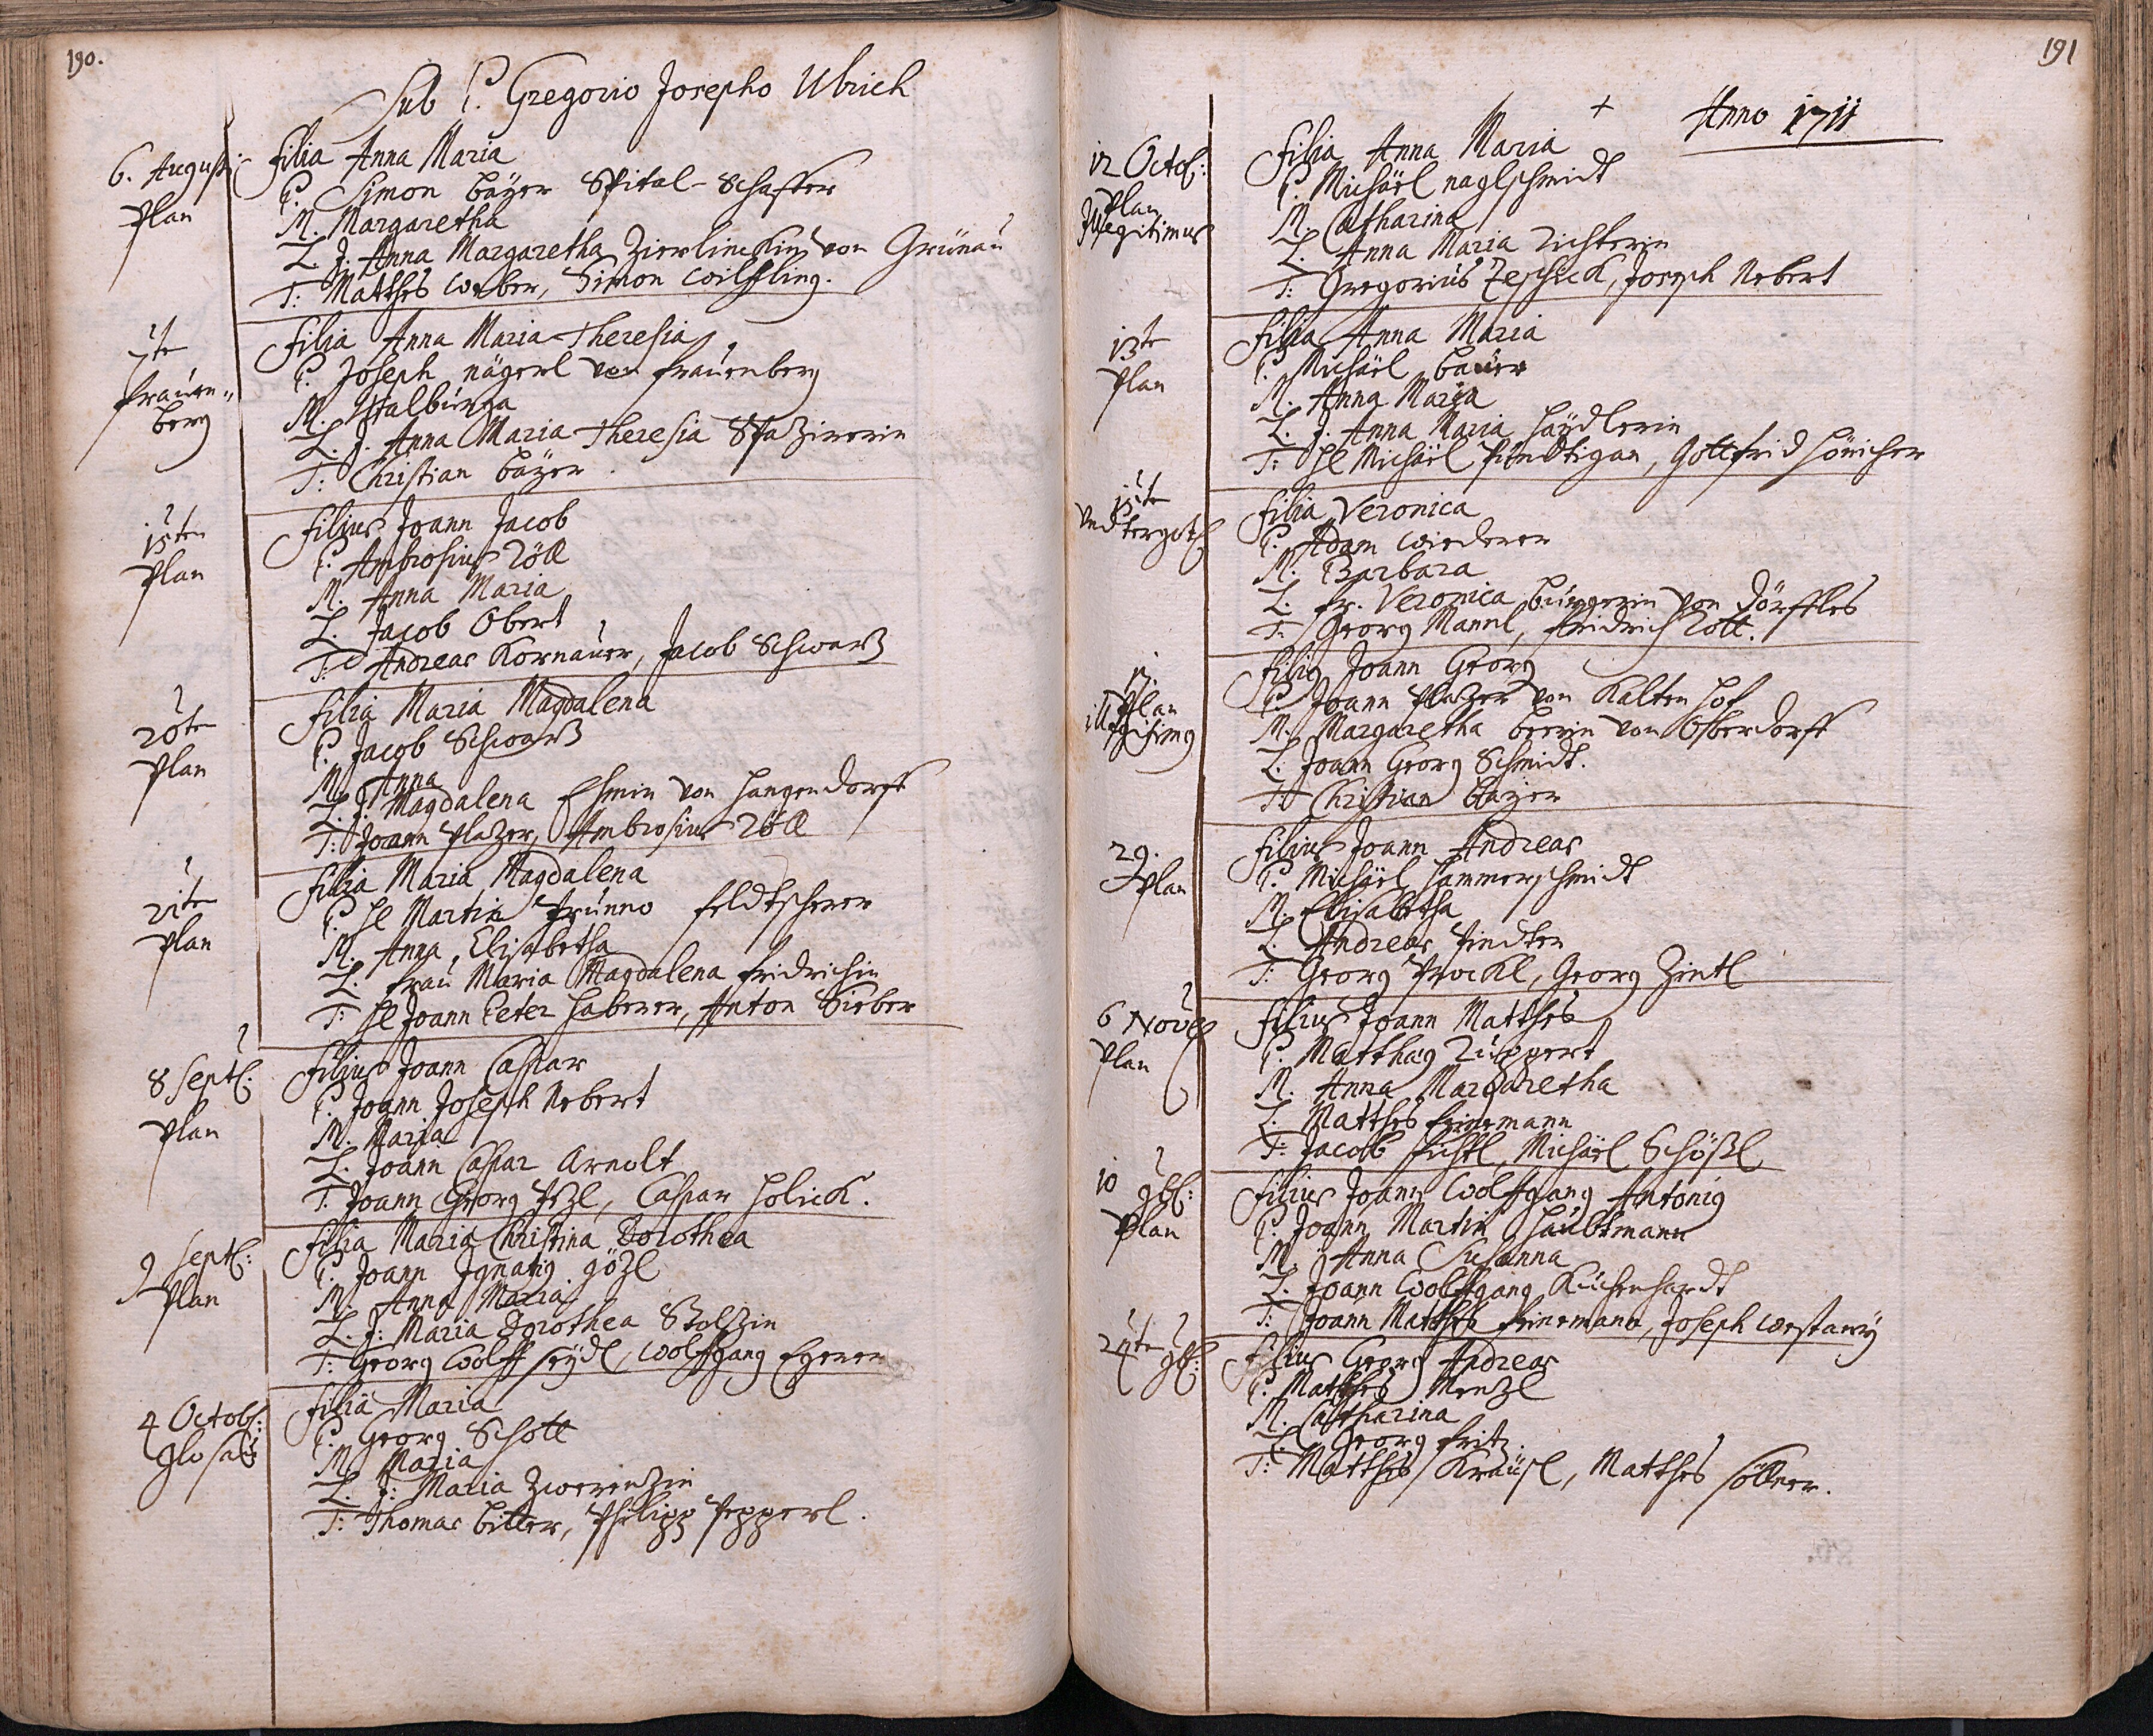 190.
Sub P. Gregorio Josepho Ulrich
6. Augusti
Plan
Filia Anna Maria
P. Simon baÿer Spital-Schaffer
M. Margaretha
L. J. Anna Margaretha von Grünau
T: Matthes Weber, Simon Wilfling.
7te
Frauen-
berg
Filia Anna Maria Theresia
P. Joseph nägerl von Frauenberg
M. Walburga
L. J. Anna Maria Theresia Spazirerin
T: Christian baÿer
15ten
Plan
Filius Joann Jacob
P. Ambrosius Röll
M. Anna Maria
L. Jacob Obert
T: Andreas Kornauer, Jacob Schwarz
20te
Plan
Filia Maria Magdalena
P. Jacob Schwarz
M. Anna
L. J. Magdalena von Hangendorff
T: Joann Plazer, Ambrosius Röll
21te
Plan
Filia Maria Magdalena
P. H. Martin Prünno feldtscherer
M. Anna Elisabetha
L. Frau Maria Magdalena Fridrichin
T: H. Joann Peter Haberer, Anton Sieber
8 Septb:
Plan
Filius Joann Caspar
P. Joann Joseph Nebert
M. Maria
L. Joann Caspar Arnolt
T. Joann Georg Pezl, Caspar Holick.
9 Septb:
Plan
Filia Maria Christina Dorothea
P. Joann Ignatig gözl
M. Anna Maria
L. J: Maria Dorothea Stolzin
T: Georg Wolff seÿdl, Wolffgang Egerer
4 Octob:
Filia Maria
P. Georg Schott
M. Maria
L. J: Maria Zwerenzin
T: Thomas bitter, Philipp Pepperl.
191
+ Anno 1711
12 Octob:
Plan
Illegitimus
Filia Anna Maria
P. Michäel naglschmidt
M. Catharina
L. Anna Maria Richterin
T: Gregorius Zeschick, Joseph Nebert
13te
Plan
Filia Anna Maria
P. Michäel bauer
M. Anna Maria
L. J. Anna Maria Haÿdlerin
T: H. Michäel Gottfrid Hönicher
15te
Filia Veronica
P. Adam Wiederer
M. Barbara
L. fr. Veronica bürgerin von Dörffles
T: Georg Mannl, Fridrich Rott.
17.
Plan
illegitimg
Filig Joann Georg
P. Joann Plazer von Kaltenhof
M. Margaretha beerin von Oberdorff
L. Joann Georg Schmidt.
T: Christian baÿer
29.
Plan
Filius Joann Andreas
P. Michäel Hammerschmidt
M. Elisabetha
L. Andreas Pindter
T: Georg Prockl, Georg Zintl
6 Novb
Plan
Filius Joann Matthes
P. Matthäg Ruppert
M. Anna Margaretha
L. Matthes Heinemann
T: Jacob Fichtl, Michäel Schößl
10 9b:
Plan
Filius Joann Wolffgang Antonig
P. Joann Martin Haubtmann
M. Anna Susanna
L. Joann Wolffgang Küchenhardt
T: Joann Matthes Heinemann, Joseph Westarÿ
24te 9b:
Filius Georg Andreas
P. Matthes Menzl
M. Catharina
L. Georg fritz.
T: Matthes Kräusl, Matthes söllner.